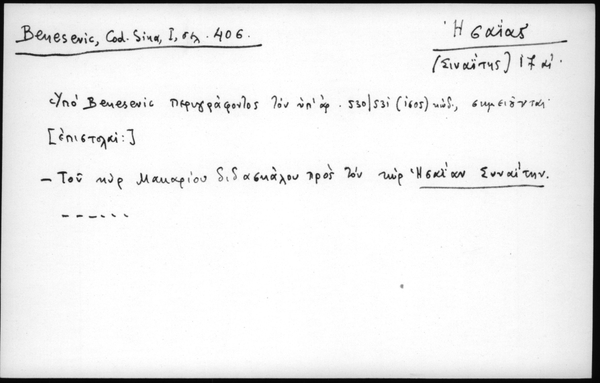 Benesevic, Cod. Sina, I, σελ. 406.
Ἡσαΐας
(Σιναΐτης) 17 αἰ.
Ὑπό Benesevic περιγράφοντος τόν ὑπ' ἀρ. 530/531 (1605) κώδ., σημειοῦνται
[ἐπιστολαί:]
– Τοῦ κύρ Μακαρίου διδασκάλου πρός τόν κύρ Ἡσαΐαν Συναΐτην.
– – – – – –